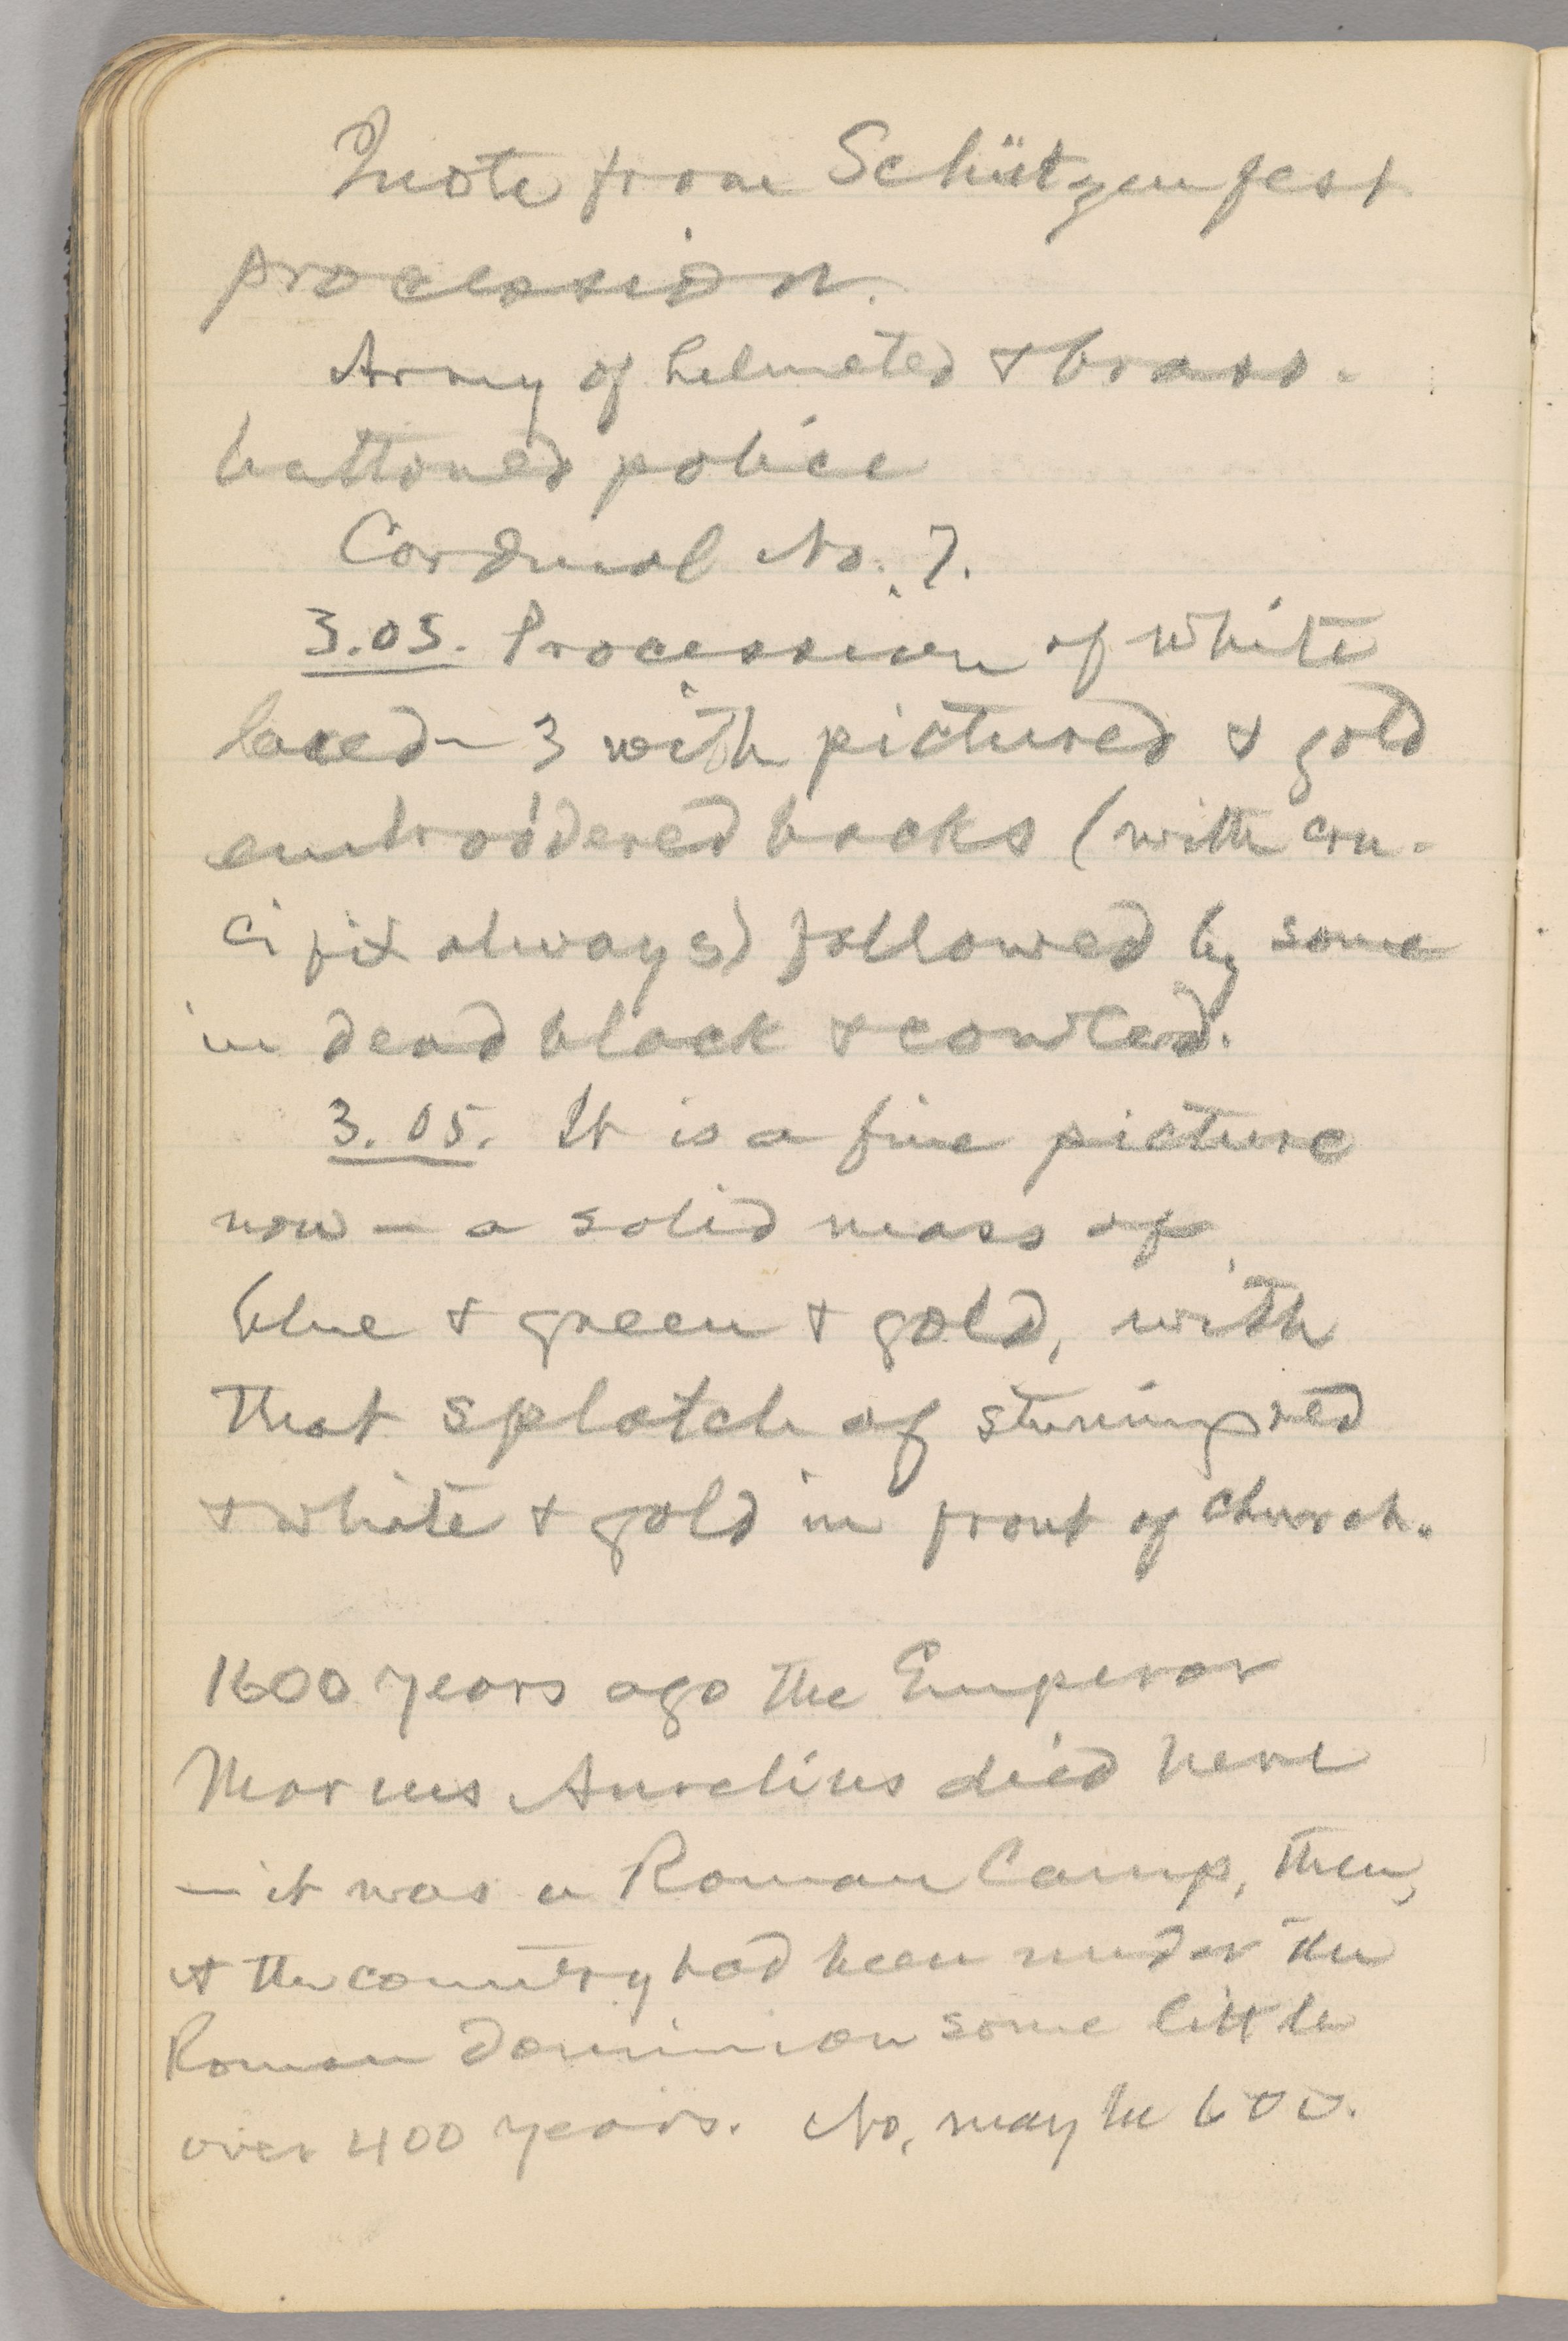 Quote from Schützenfest
procession.
Army of helmeted & brass-
buttoned police
Cardinal No. 7.
3.05. Procession of white
laced – 3 with pictured & gold
embroidered backs (with cru-
cifix always) followed by some
in dead black & cowled.
3.05. It is a fine picture
now — a solid mass of
blue & green & gold, with
that splotch of stunning red
& white & gold in front of church.
1600 years ago the Emperor
Marcus Aurelius died here
— it was a Roman Camp, then,
& the country had been under the
Roman dominion some little
over 400 years. No, maybe 600.